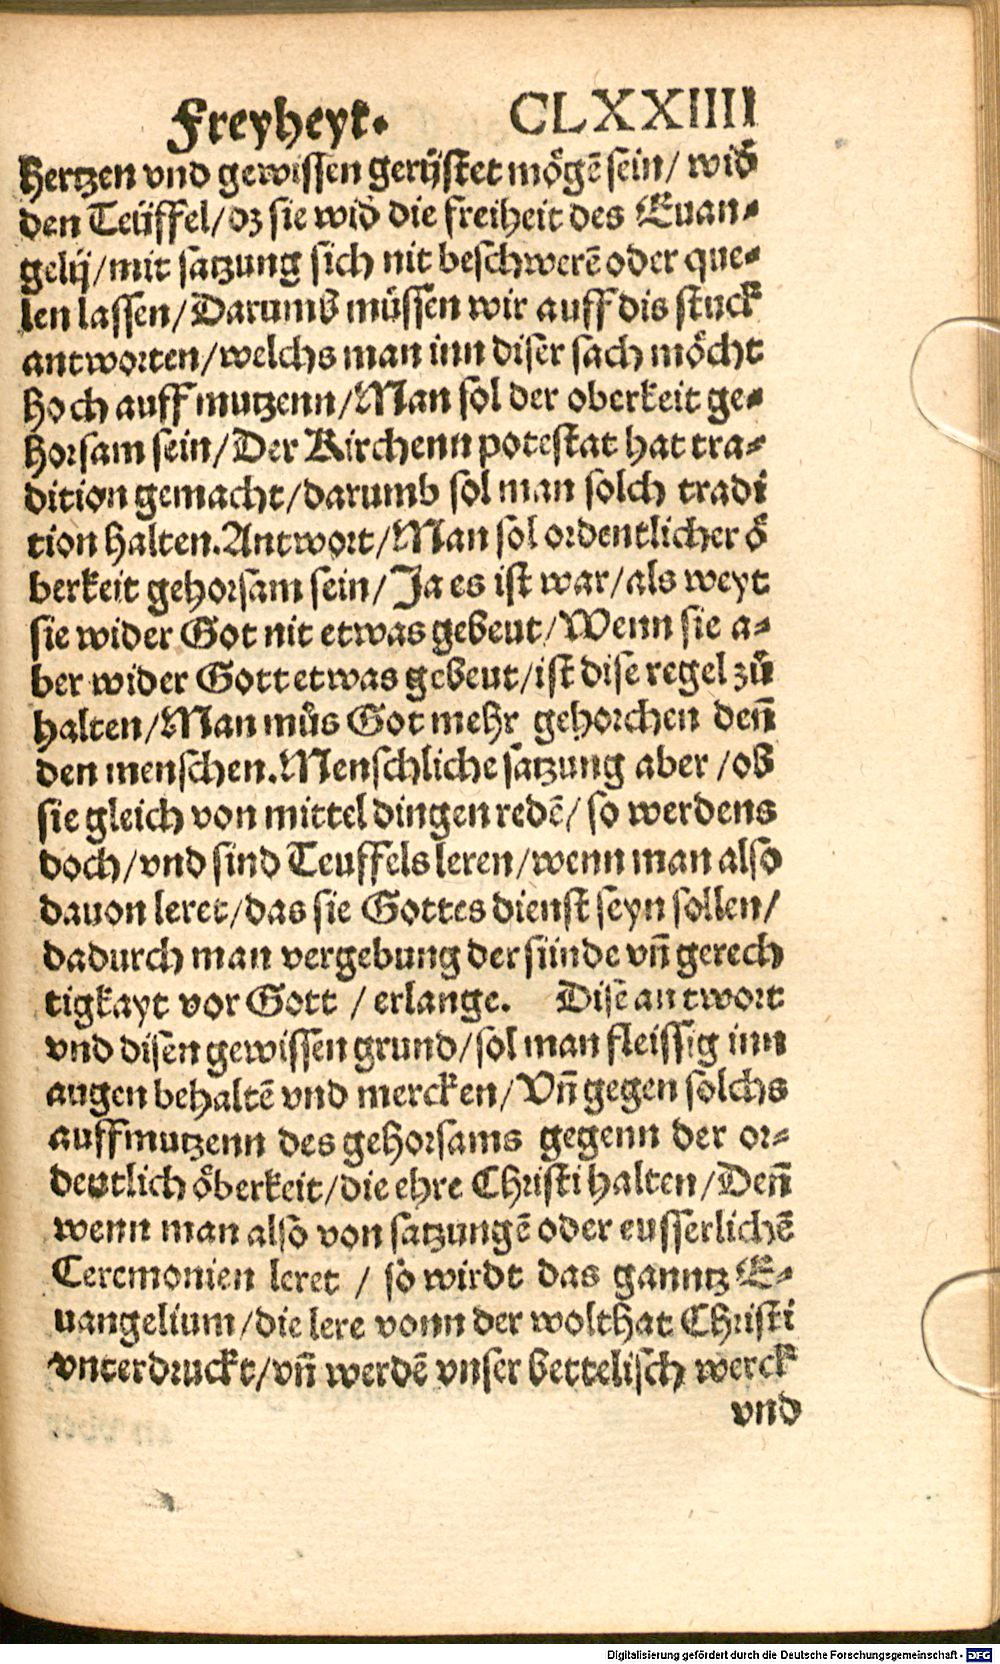 Freyheyt. CLXXIIII
hertzen vnd gewissen gerÿstet mögē sein/ wid̄
den Teüffel/ dz sie wid̄ die freiheit des Euan-
gelij/ mit satzung sich nit beschwerē oder que-
len lassen/ Darumb müssen wir auff dis stuck
antworten/ welchs man inn diser sach möcht
hoch auff mutzenn/ Man sol der oberkeit ge-
horsam sein/ Der Kirchenn potestat hat tra-
dition gemacht/ darumb sol man solch tradi
tion halten. Antwort/ Man sol ordentlicher ö
berkeit gehorsam sein/ Ja es ist war/ als weyt
sie wider Got nit etwas gebeut/ Wenn sie a-
ber wider Gott etwas gebeut/ ist dise regel zů
halten/ Man můs Got mehr gehorchen den̄
den menschen. Menschliche satzung aber / ob
sie gleich von mittel dingen redē/ so werdens
doch/ vnd sind Teuffels leren/ wenn man also
dauon leret/ das sie Gottes dienst seyn sollen/
dadurch man vergebung der sünde vn̄ gerech
tigkayt vor Gott / erlange. Dise antwort
vnd disen gewissen grund/ sol man fleissig inn
augen behaltē vnd mercken/ Vn̄ gegen solchs
auffmutzenn des gehorsams gegenn der or-
dentlich öberkeit/ die ehre Christi halten/ Den̄
wenn man also von satzungē oder eusserlichē
Ceremonien leret / so wirdt das ganntz E-
uangelium/ die lere vonn der wolthat Christi
vnterdruckt/ vn̄ werdē vnser bettelisch werck
vnd
Digitalisierung gefördert durch die Deutsche Forschungsgemeinschaft - DFG